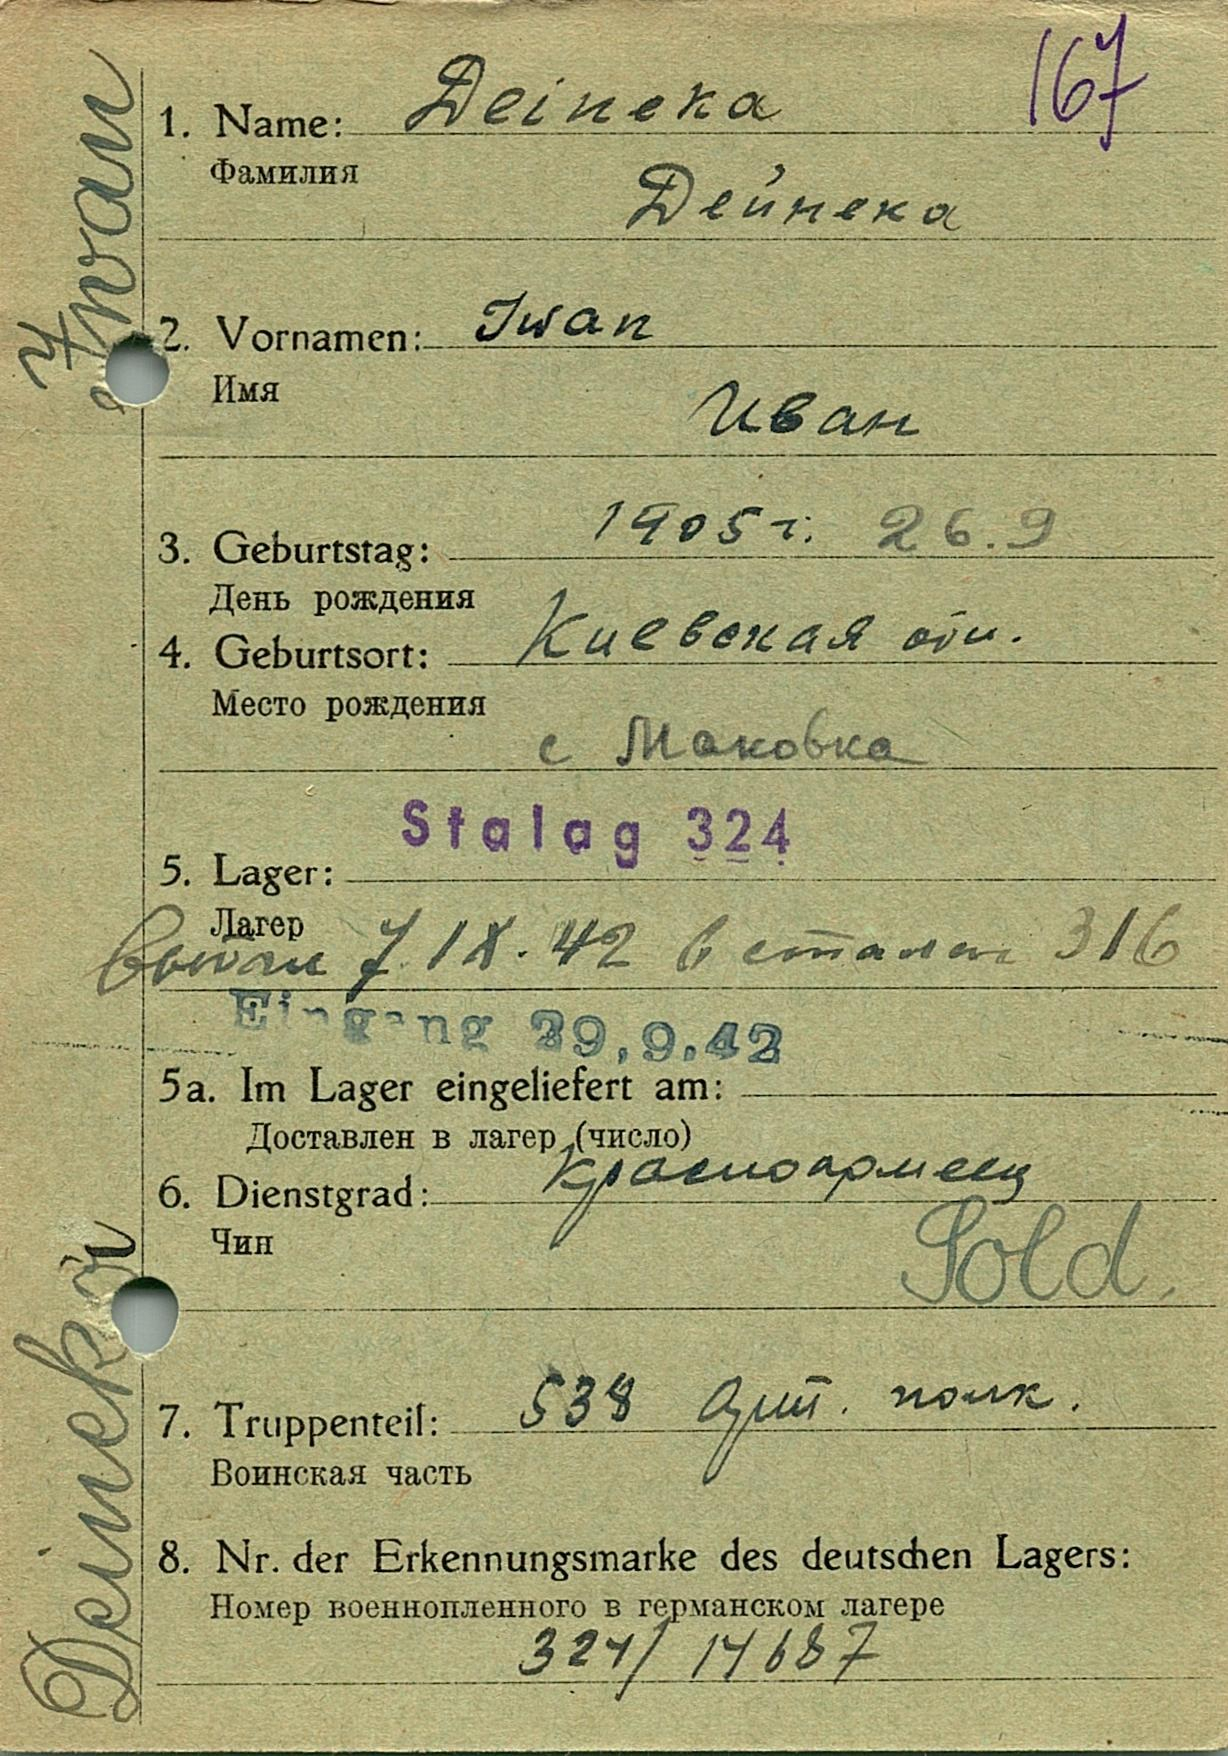 167
1. Name: Deineka
Фамилия
Дейнека
2. Vornamen: Iwan
Имя
Иван
3. Geburtstag: 1905 г. 26.9
День рождения
4. Geburtsort: Киевская обл.
Место рождения
с Маковка
Stalag 324
5. Lager:
Лагер
выбыл 7.IX.42 в сталаг 316
Eingang 29.9.42
5a. Im Lager eingeliefert am:
Доставлен в лагер (число)
6. Dienstgrad: Красноармеец
Чин
Sold.
7. Truppenteil: 538 арт. полк.
Воинская часть
8. Nr. der Erkennungsmarke des deutschen Lagers:
Номер военнопленного в германском лагере
324/ 14687
Deineka
Iwan